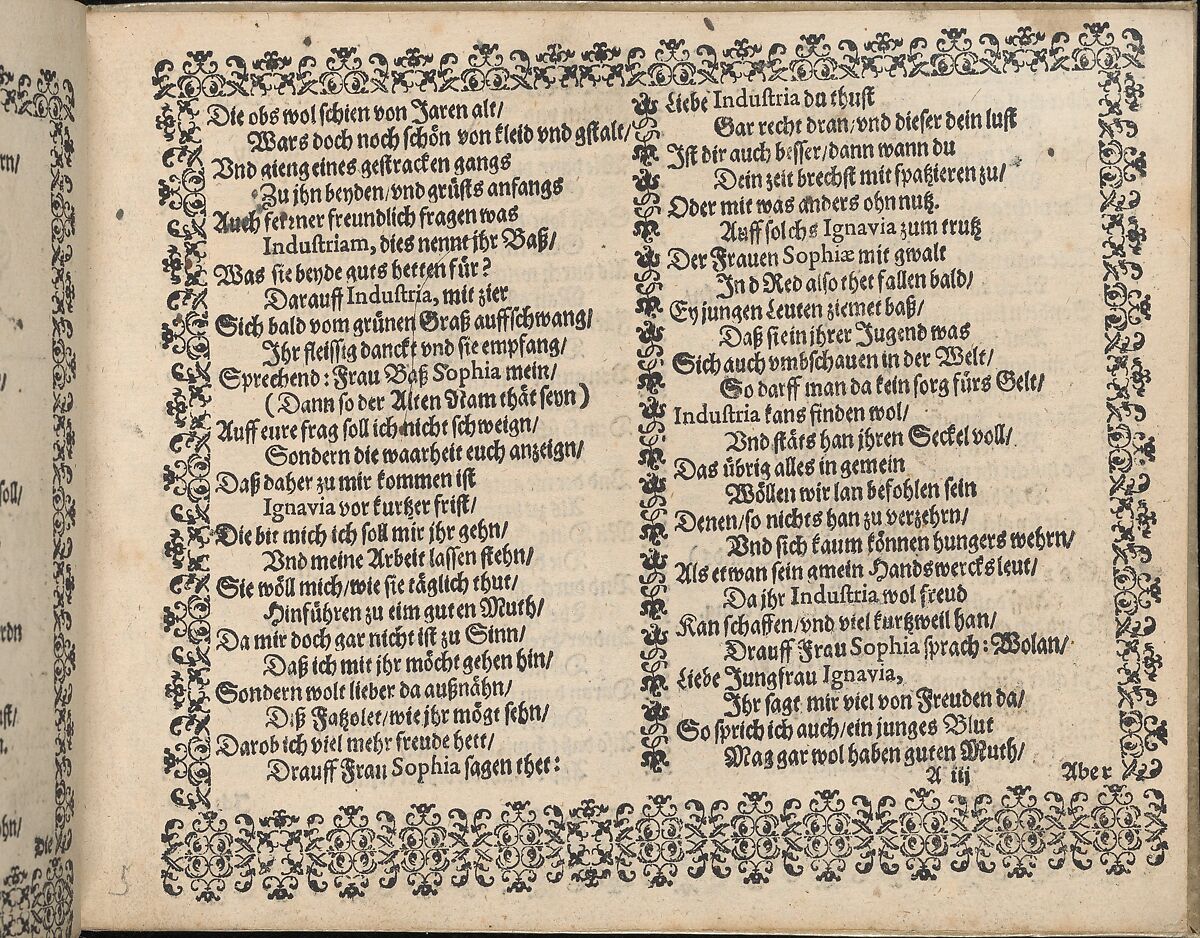 Die obs wol schien von Jaren alt/
Wars doch noch schön von kleid vnd gstalt/
Vnd gieng eines gestracken gangs
Zu jhn beyden/vnd grüsts anfangs
Auch ferrner freundlich fragen was
Industriam, dies nennt jhr Baß/
Was sie beyde guts hetten für?
Darauff Industria, mit zier
Sich bald vom grünen Graß auffschwang/
Jhr fleissig danckt vnd sie empfang/
Sprechend: Frau Baß Sophia mein/
(Dann so der Alten Nam thät seyn)
Auff eure frag soll ich nicht schweign/
Sondern die waarheit euch anzeign/
Daß daher zu mir kommen ist
Ignavia vor kurtzer frist/
Die bit mich ich soll mir jhr gehn/
Vnd meine Arbeit lassen stehn/
Sie wöll mich/wie sie täglich thut/
Hinführen zu eim guten Muth/
Da mir doch gar nicht ist zu Sinn/
Daß ich mit jhr möcht gehen hin/
Sondern wolt lieber da außnähn/
Diß Fatzolet/wie jhr mögt sehn/
Darob ich viel mehr freude hett/
Drauff Frau Sophia sagen thet:
Liebe Industria du thust
Gar recht dran/vnd dieser dein lust
Jst dir auch besser/dann wann du
Dein zeit brechst mit spatzieren zu/
Oder mit was anders ohn nutz.
Auff solchs Ignavia zum trutz
Der Frauen Sophiæ mit gwalt
Jn d Red also thet fallen bald/
Ey jungen Leuten ziemet baß/
Daß sie in jhrer Jugend was
Sich auch vmbschauen in der Welt/
So darff man da kein sorg fürs Gelt/
Industria kans finden wol/
Vnd stäts han jhren Seckel voll/
Das übrig alles in gemein
Wöllen wir lan befohlen sein
Denen/so nichts han zu verzehrn/
Vnd sich kaum können hungers wehrn/
Als etwan sein gmein Handswercksleut/
Da jhr Industria wol freud
Kan schaffen/vnd viel kurtzweil han/
Drauff Frau Sophia sprach: Wolan/
Liebe Jungfrau Ignavia,
Jhr sagt mir viel von Freuden da/
So sprich ich auch/ein junges Blut
Mag gar wol haben guten Muth/
A iij
Aber
5
rn/
soll/
Die